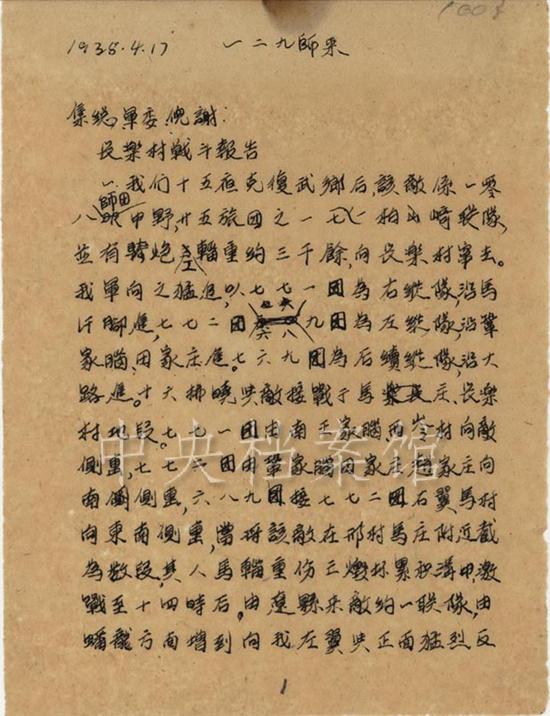 1938.4.17 一二九師来
集総,軍委,倪謝:
長樂村戰斗報告
一.我们十五夜克復武鄉后,該敵係一零
八師団甲野,廿五旅団之一一七,柏山崎联隊,
並有騎炮工輜重約三千餘,向長樂村窜去。
我軍向之猛進,以七七一団為右縱隊,沿馬
汗腳進,七七二团六八九团為左縱隊,沿鞏
家腦,田家庄進。七六九团為后續縱隊,沿大
路進。十六拂曉與敵接戰于馬庄、長樂
村地段。七七一团由南王家腦西岺村向敵
側擊,七七二团由鞏家腦田家庄家庄向
南側側擊,六八九团接七七二团右翼馬村
向東南側擊,當將該敵在邢村馬庄附近截
為数段,其人馬輜重伤亡累积溝中,激
戰至十四時后,由遼縣来敵約一联隊,由
蟠龍方面增到向我左翼與正面猛烈反
1
中央档案馆